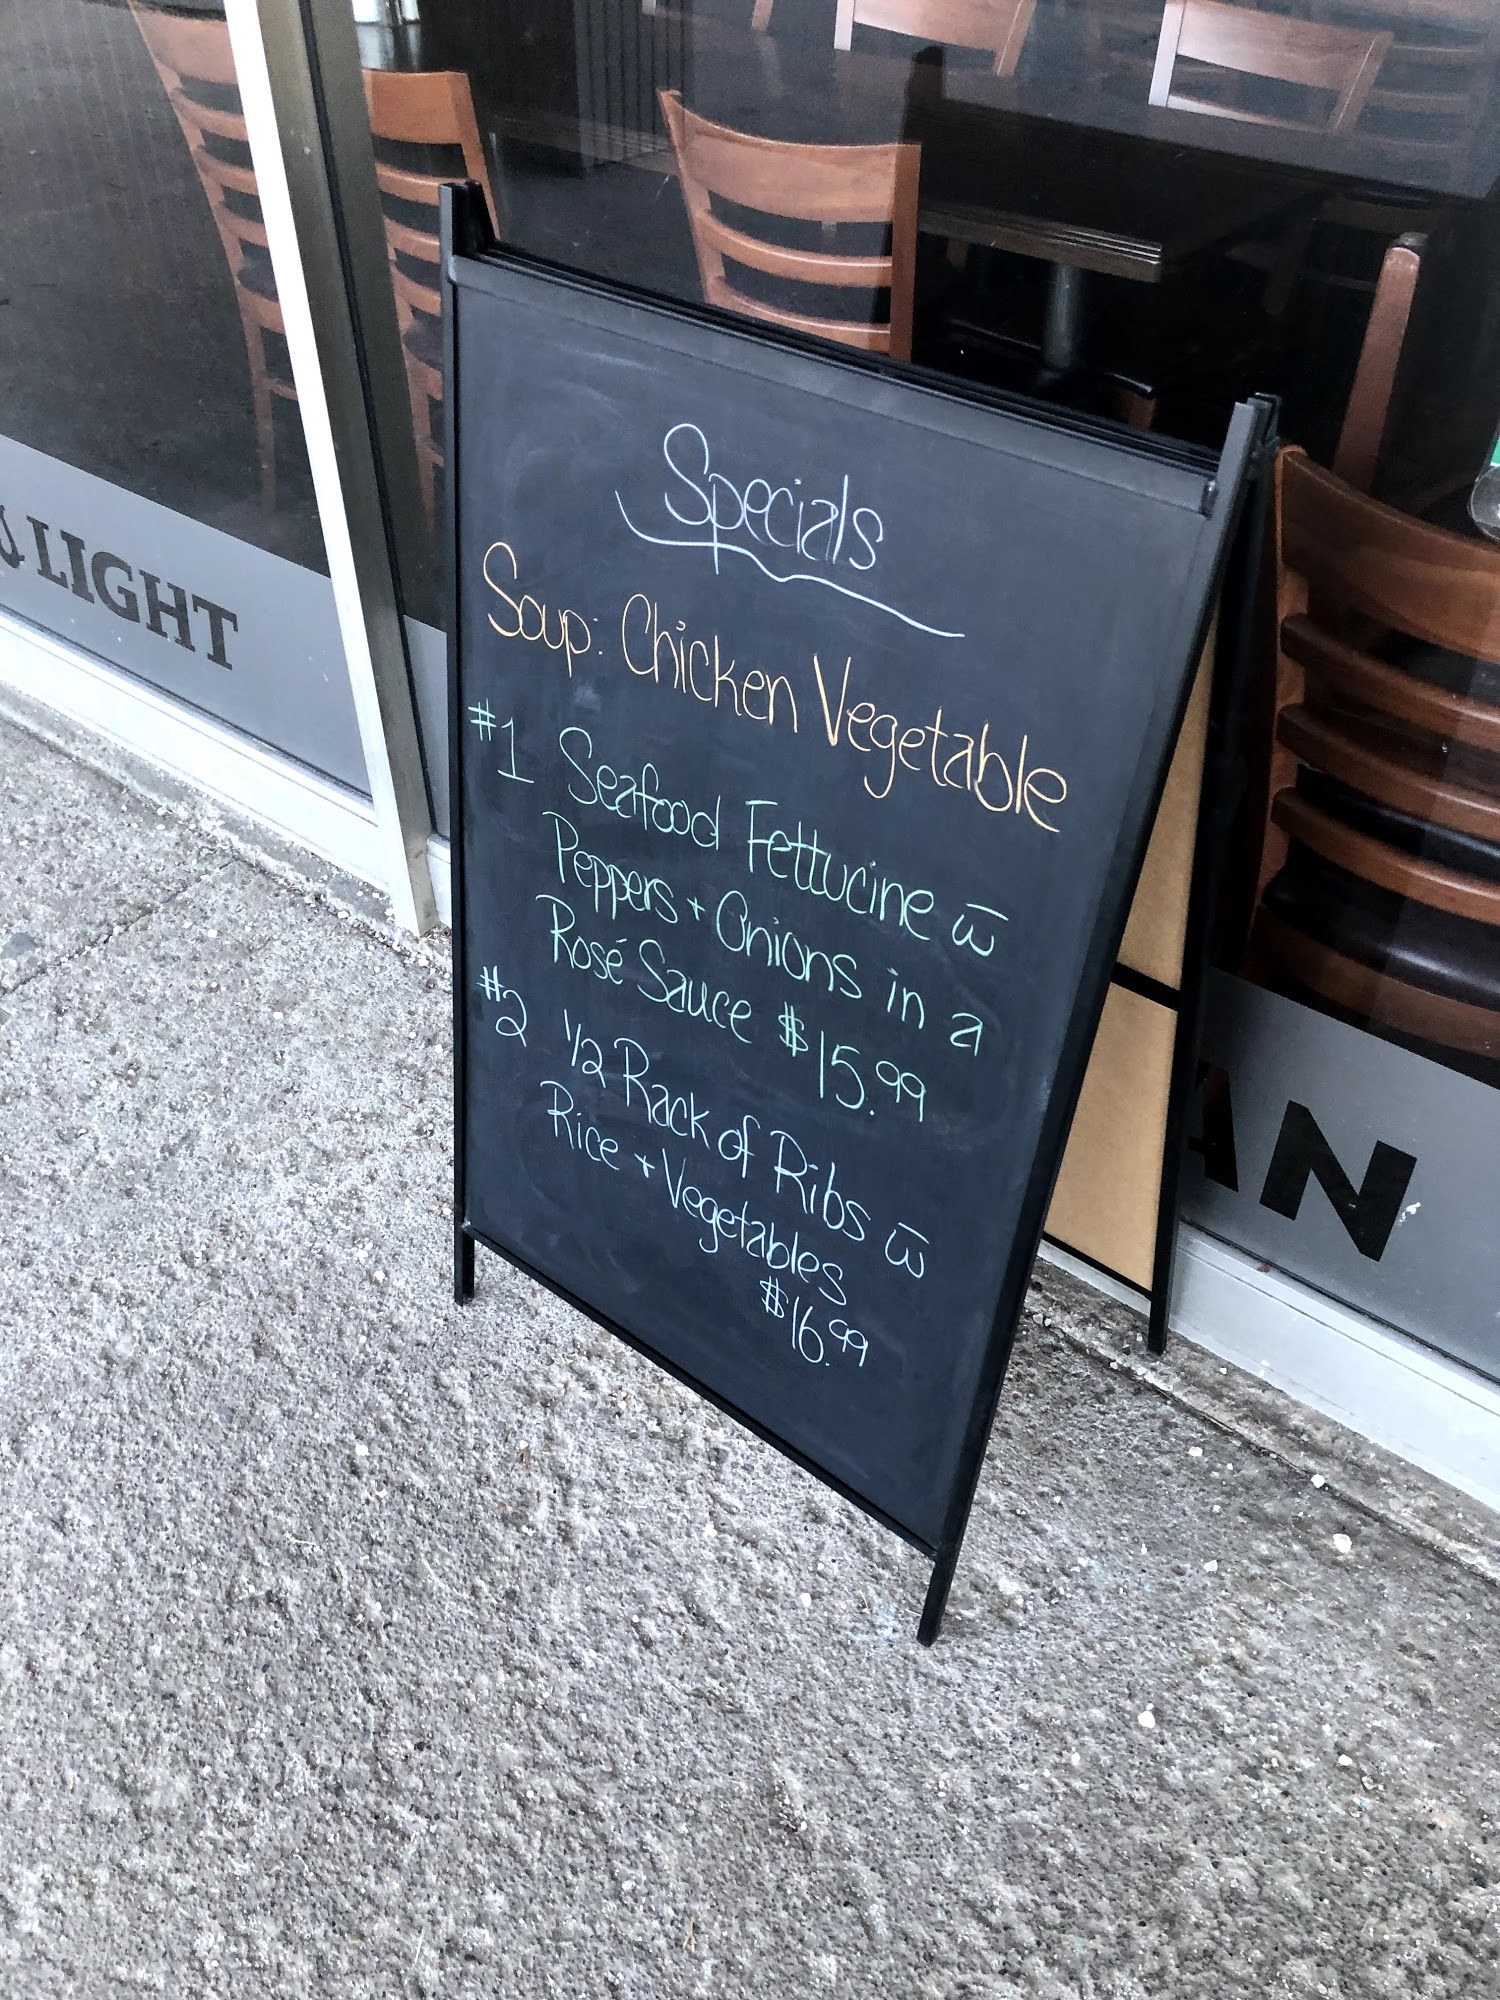 Specials
Soup: Chicken Vegetable
#1 Seafood Fettucine w̄
Peppers + Onions in a
Rosé Sauce $15.99
#2 1/2 Rack of Ribs w̄
Rice + Vegetables
$16.99
LIGHT
AN